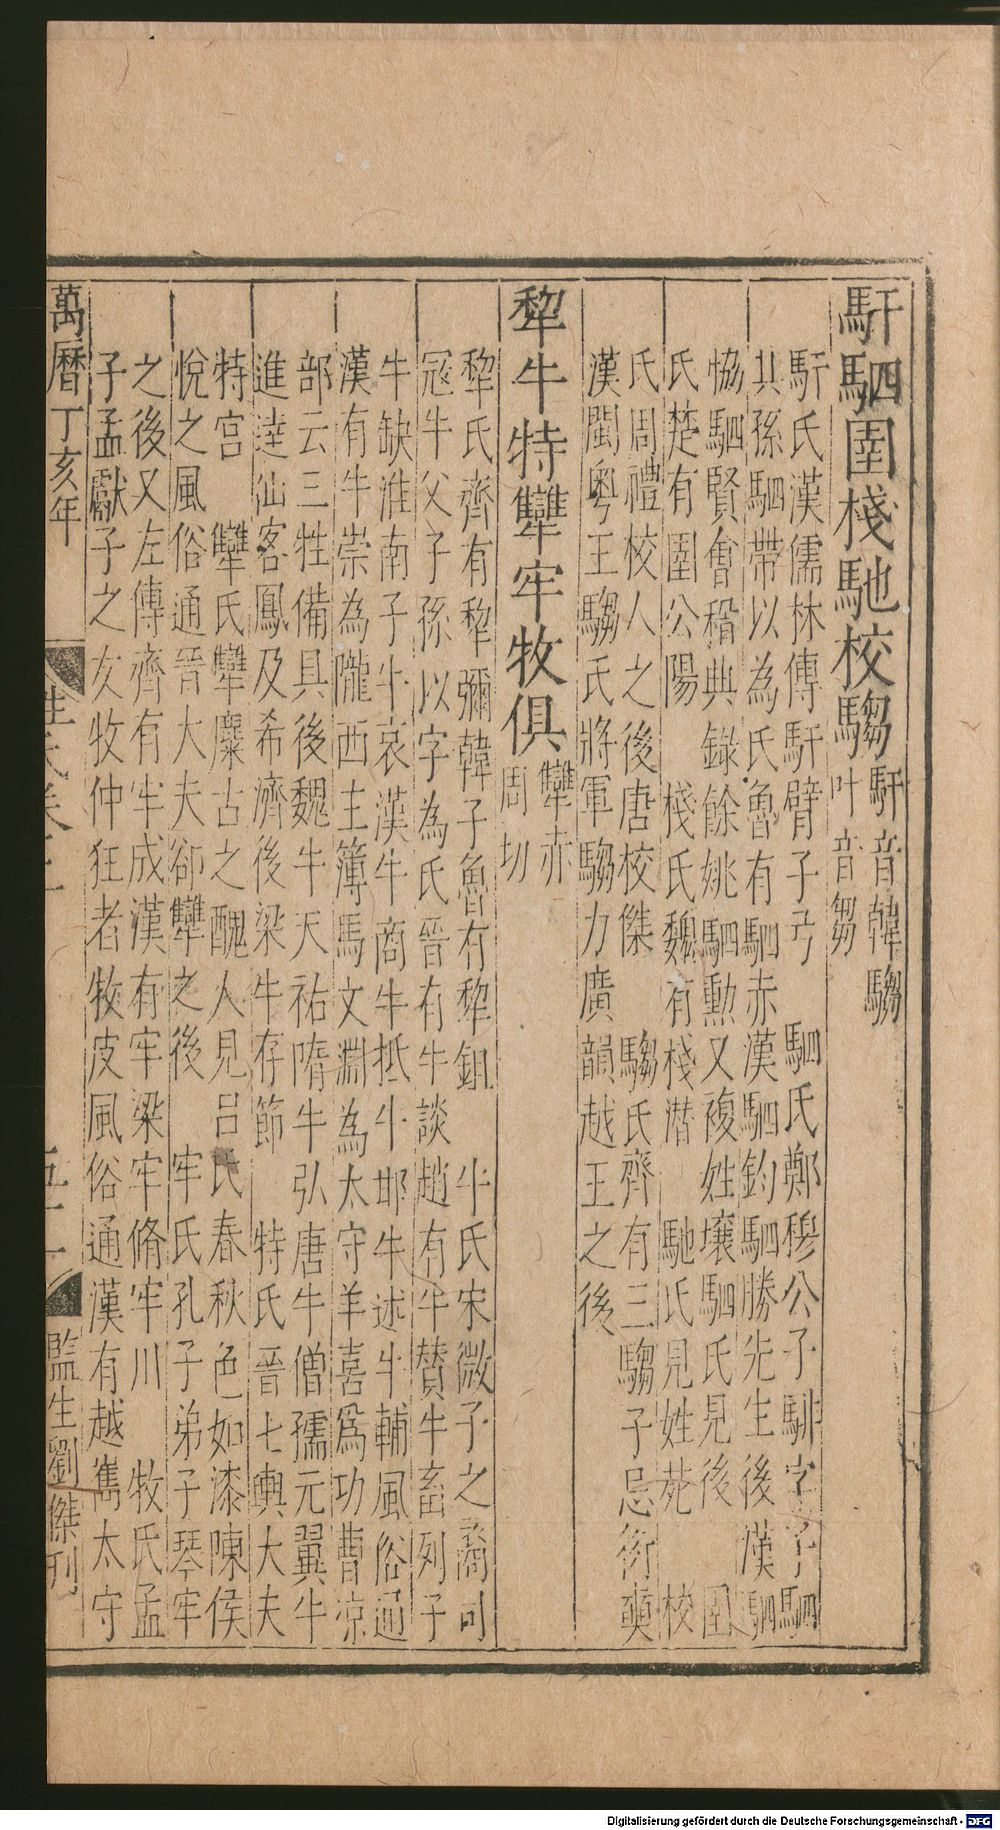 馯駟圉棧馳校騶馯音韓騶
叶音芻
馯氏漢儒林傳馯臂子弓　駟氏鄭穆公子騑字子駟
其孫駟帶以為氏魯有駟赤漢駟鈞駟勝先生後漢駟
恊駟賢會稽典錄餘姚駟勳又複姓壤駟氏見後　圉
氏楚有圉公陽　棧氏魏有棧潛　馳氏見姓苑　校
氏周禮校人之後唐校傑　騶氏齊有三騶子忌衍奭
漢閩粵王騶氏將軍騶力廣韻越王之後
犂牛特犨牢牧俱犨赤
周切
犂氏齊有犂彌韓子魯有犂鉏　牛氏宋微子之裔司
冦牛父子孫以字為氏晉有牛談趙有牛贊牛畜列子
牛缺淮南子牛哀漢牛商牛抵牛邯牛述牛輔風俗通
漢有牛崇為隴西主簿馬文淵為太守羊喜為功曹凉
部云三牲備具後魏牛天祐隋牛弘唐牛僧孺元翼牛
進達仙客鳳及希濟後梁牛存節　特氏晉七輿大夫
特宮　犨氏犨麋古之醜人見呂氏春秋色如漆陳侯
悅之風俗通晉大夫郤犨之後　牢氏孔子弟子琴牢
之後又左傳齊有牢成漢有牢梁牢脩牢川　牧氏孟
子孟獻子之友牧仲狂者牧皮風俗通漢有越嶲太守
萬曆丁亥年
監生劉傑刊
Digitalisierung gefördert durch die Deutsche Forschungsgemeinschaft - DFG